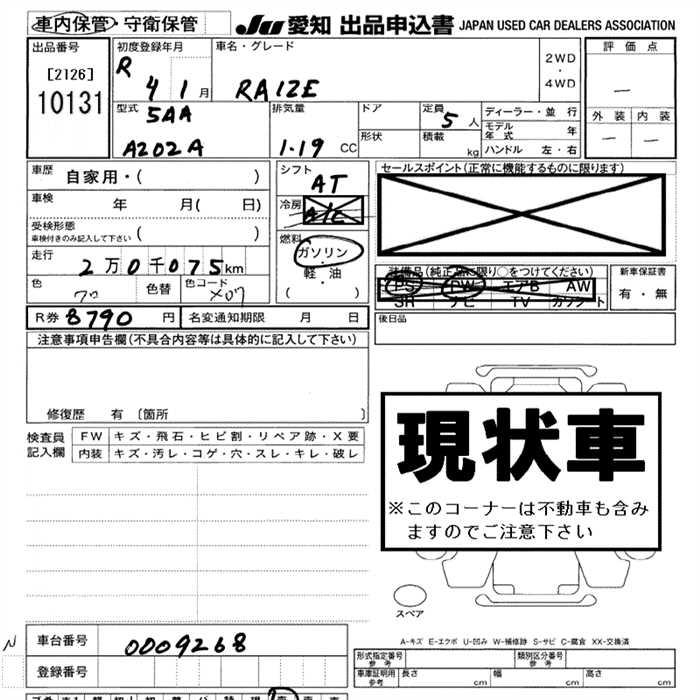 車内保管・守衛保管 JU 愛知 出品申込書 JAPAN USED CAR DEALERS ASSOCIATION
出品番号 初度登録年月 車名・グレード 2WD・4WD 評価点
[2126] R 4 1月 RAIZE －
10131 型式 排気量 ドア 定員 ディーラー・並行 外装 内装
5AA 5人 モデル年式 年 － －
A202A 1.19 CC 形状 積載 kg ハンドル 左・右
車歴 自家用・( ) シフト AT セールスポイント(正常に機能するものに限ります)
車検 年 月( 日) 冷房 A/C
受検形態 ( ) 燃料
車検付きのみ記入して下さい ガソリン
走行 2万0千075km 軽・油 装備品(純正品に限り○をつけてください) 新車保証書
色 色替 色コード ( ) PS PW エアB AW 有・無
SR ナビ TV カワシート
R券 8790 円 名変通知期限 月 日 後日品
注意事項申告欄(不具合内容等は具体的に記入して下さい)
修復歴 有 〔箇所 〕
検査員記入欄 FW キズ・飛石・ヒビ割・リペア跡・X要
内装 キズ・汚レ・コゲ・穴・スレ・キレ・破レ
現状車
※このコーナーは不動車も含み
ますのでご注意下さい
スペア
A-キズ E-エクボ U-凹み W-補修跡 S-サビ C-腐食 XX-交換済
N 車台番号 0009268 形式指定番号 参考 類別区分番号 参考
登録番号 車庫証明用 参考 長さ cm 幅 cm 高さ cm